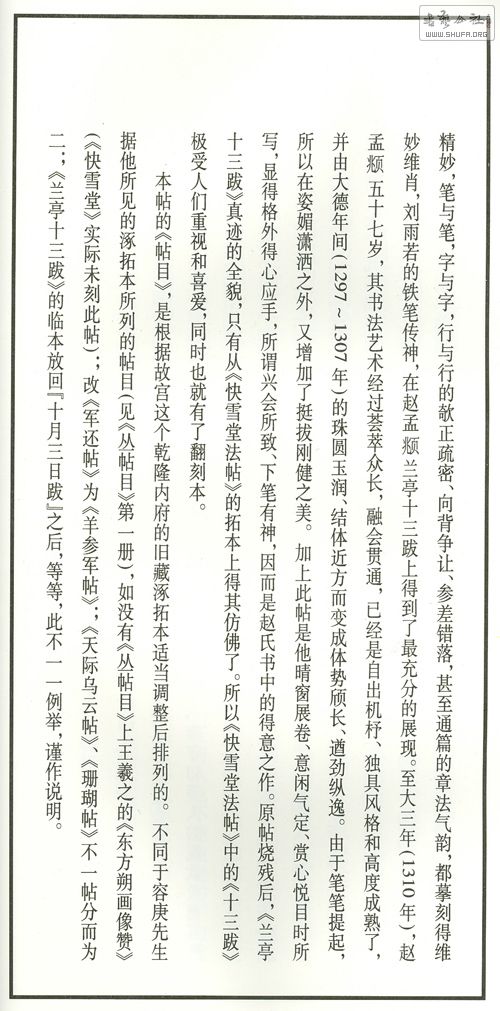 精妙，笔与笔，字与字，行与行的欹正疏密、向背争让、参差错落，甚至通篇的章法气韵，都摹刻得维
妙维肖，刘雨若的铁笔传神，在赵孟頫兰亭十三跋上得到了最充分的展现。至大三年(1310年)，赵
孟頫五十七岁，其书法艺术经过荟萃众长，融会贯通，已经是自出机杼、独具风格和高度成熟了，
并由大德年间(1297~1307年)的珠圆玉润、结体近方而变成体势颀长、遒劲纵逸。由于笔笔提起，
所以在姿媚潇洒之外，又增加了挺拔刚健之美。加上此帖是他晴窗展卷、意闲气定、赏心悦目时所
写，显得格外得心应手，所谓兴会所致、下笔有神，因而是赵氏书中的得意之作。原帖烧残后，《兰亭
十三跋》真迹的全貌，只有从《快雪堂法帖》的拓本上得其仿佛了。所以《快雪堂法帖》中的《十三跋》
极受人们重视和喜爱，同时也就有了翻刻本。
本帖的《帖目》，是根据故宫这个乾隆内府的旧藏涿拓本适当调整后排列的。不同于容庚先生
据他所见的涿拓本所列的帖目(见《丛帖目》第一册)，如没有《丛帖目》上王羲之的《东方朔画像赞》
(《快雪堂》实际未刻此帖)；改《军还帖》为《羊参军帖》；《天际乌云帖》、《珊瑚帖》不一帖分而为
二；《兰亭十三跋》的临本放回『十月三日跋』之后，等等，此不一一例举，谨作说明。
WWW.SHUFA.ORG